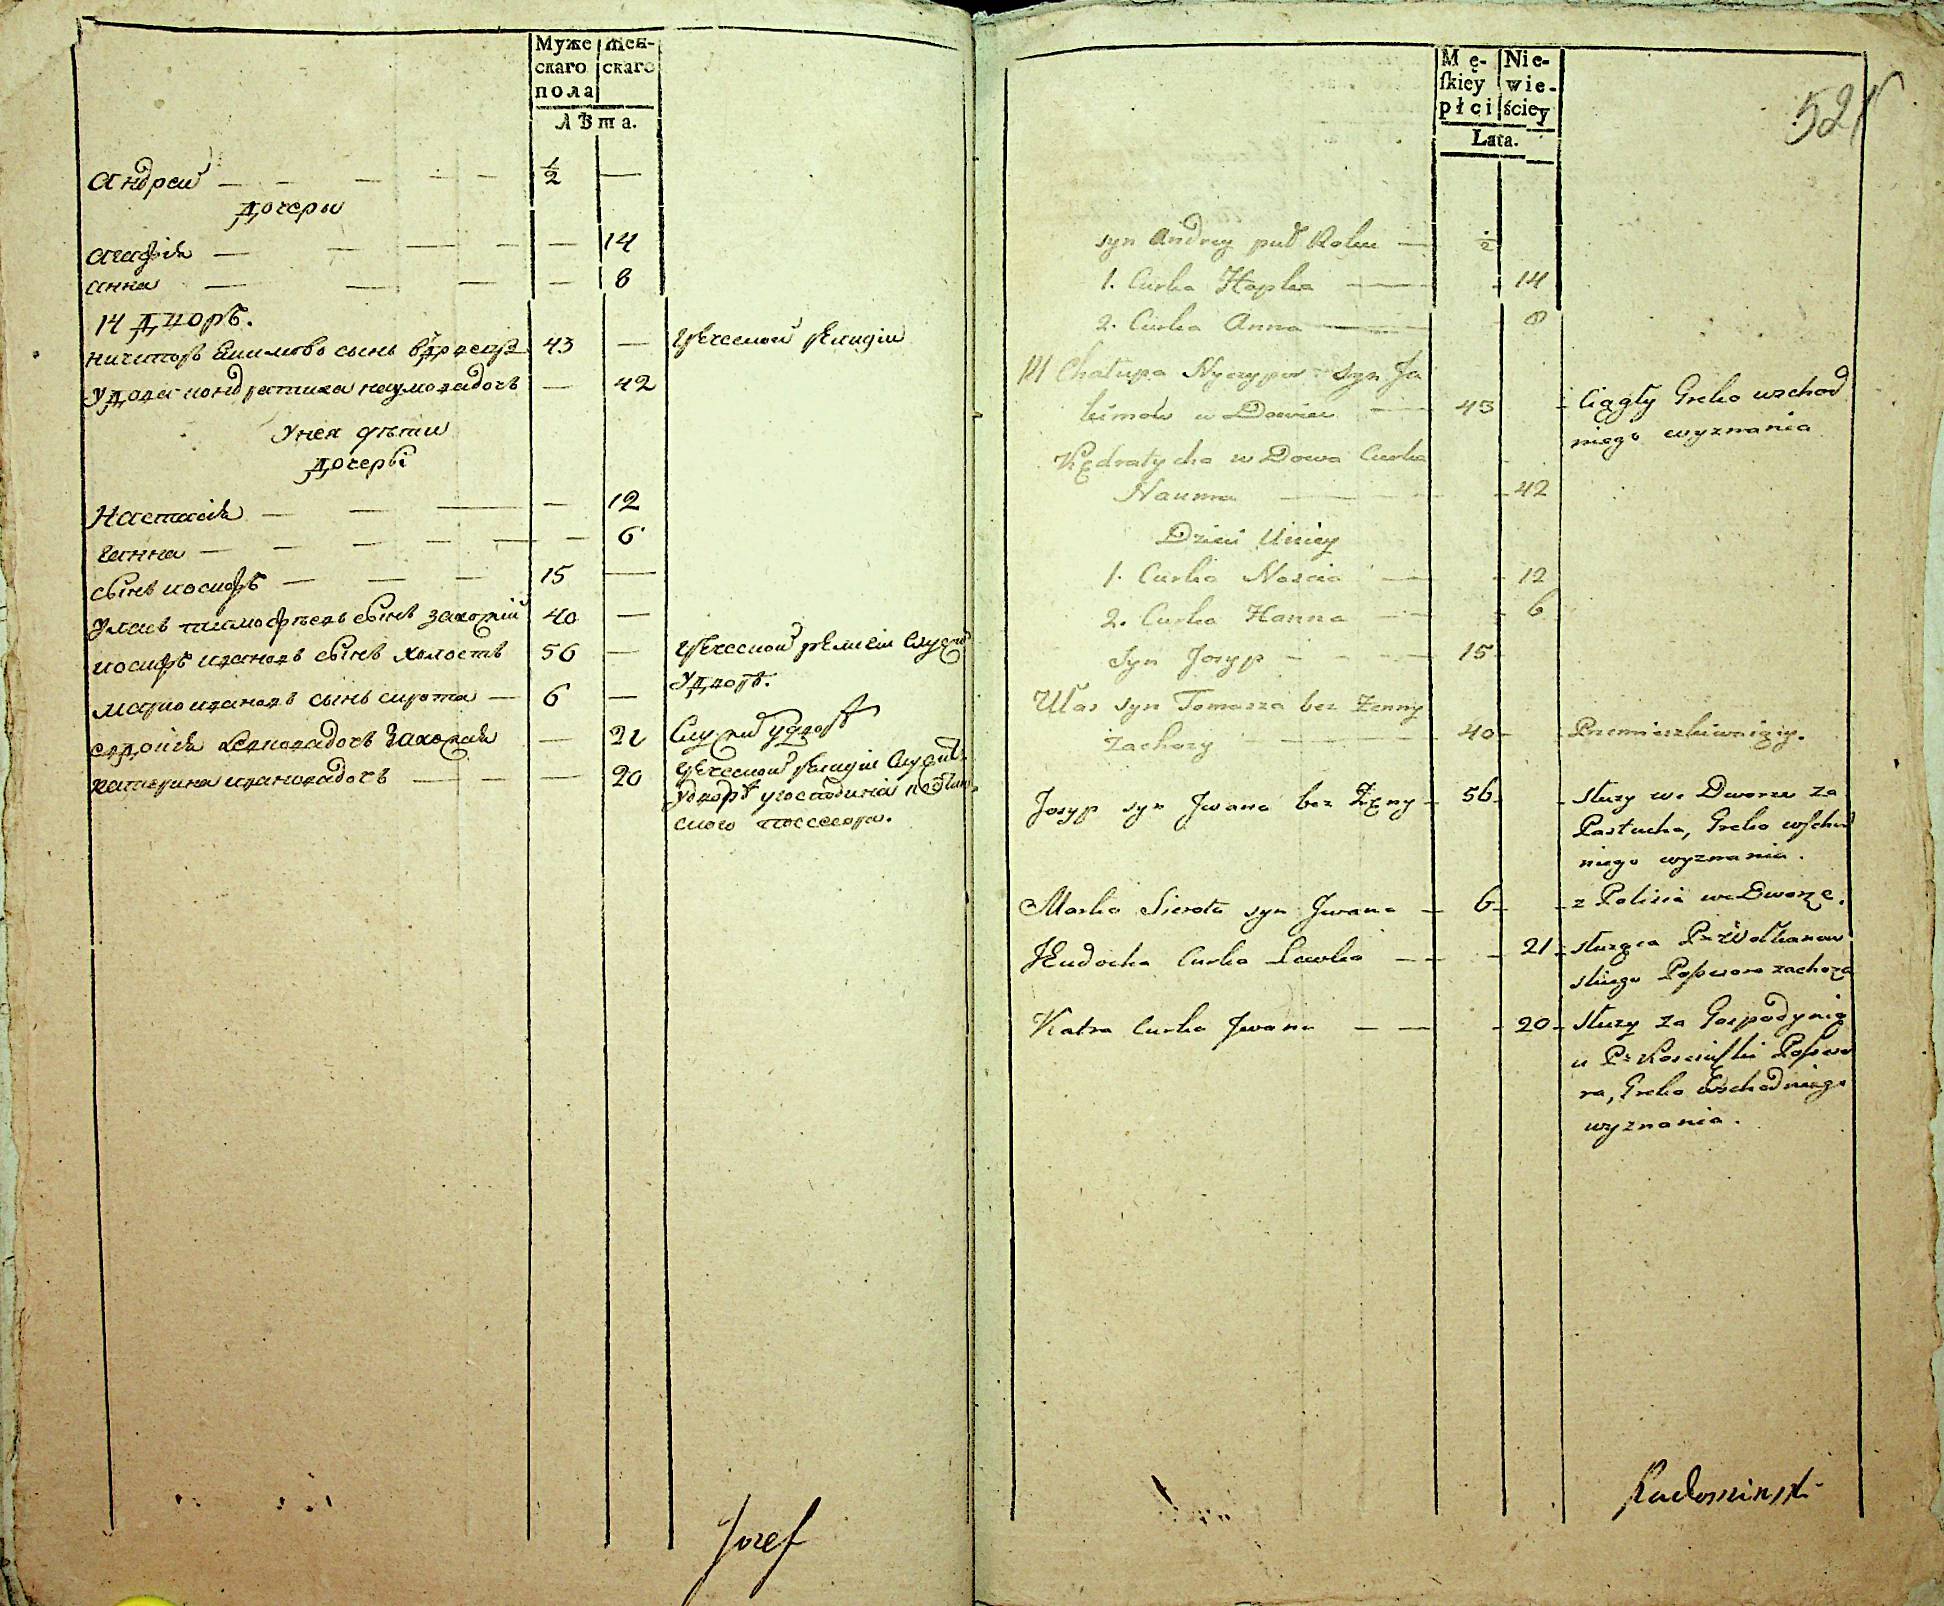 Муже
скаго
пола
жен-
скаго
лѣта.
Андрей — — — — — ½ —
дочеры
агафія — — — — — 14
анна — — — — 8
14 дворъ.
ничипоръ Екимовъ сынъ вдовецъ 43 — греческой религіи
удова кондратиха наумовадочъ — 42
Унея дѣти
дочеры
Настасія — — — — 12
ганна — — — — — — 6
сынъ иосифъ — — — 15 —
уласъ тимофѣевъ сынъ захожій 40 —
иосифъ ивановъ сынъ холостъ 56 — греческой религіи служи
удворѣ.
марко ивановъ сынъ сирота — 6 —
евдокія левковадочъ захожая — 21 служи удворѣ
катерина ивановадочъ — — — 20 греческой религіи служит
удворѣ угосподина
скаго поссесора.
Jozef
Mę-
ſkiey
płci
Nie-
wie-
ściey
Lata.
521
syn Andrey puł Roku — ½
1. Curka Hapka — 14
2. Curka Anna — 8
14 Chałupa Nyczypor syn Ja
kimow w Dowiec — 43 Ciągły Greko wschod
niego wyznania
Kędratycha w Dowa Curka
Nauma — — — — 42
Dzieci Uniey
1. Curka Nascia — — 12
2. Curka Hanna — — 6
Syn Josyp — — — 15
Ułas syn Tomasza bez Zenny
zachozy — — 40 — Pzemieszkiwaiąiy.
Josyp syn Jwana bez Zęny — 56 — słuzy we Dworze za
Pastucha, Greko wſchod
niego wyznania.
Marko Sierota syn Jwana — 6 — z Polisia we Dworze.
Jeudocha Curka Lewka — — — 21 — służąca
skiego Poſsesora zachoza
Katra Curka Jwana — — — 20 — słuzy za Gospodynią
u Poſseso
ra, Greko Wschodniego
wyznania.
Radominski